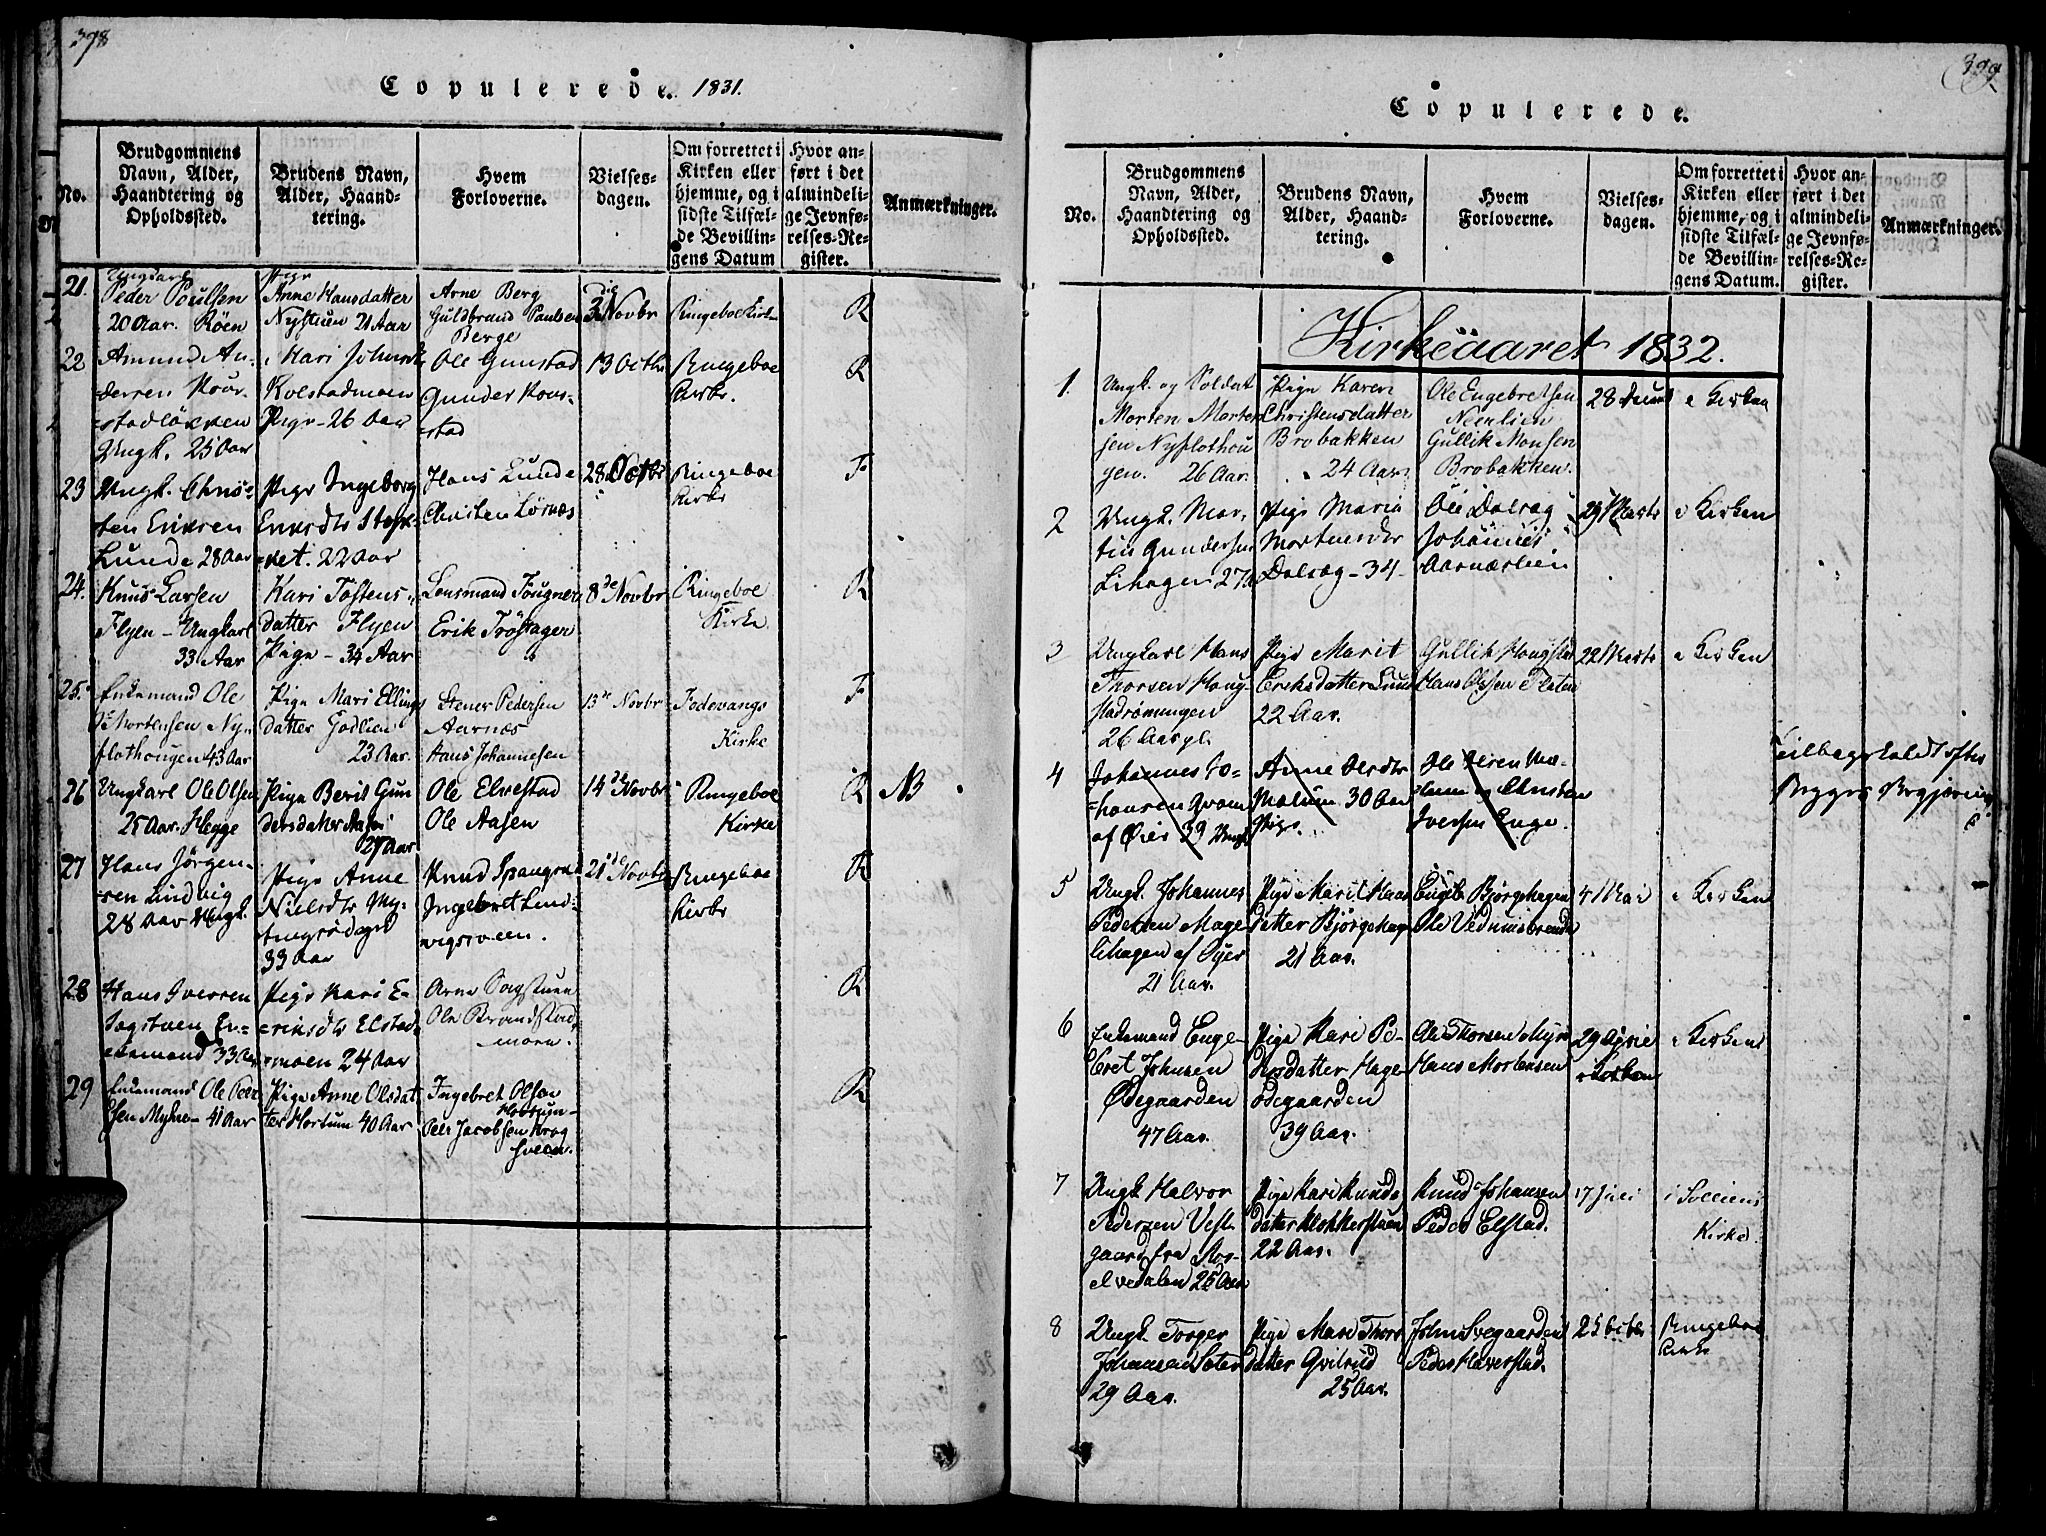 398
Copulerede. 1831.
No.
Brudgommens Navn, Alder, Haandtering og Opholdssted.
Brudens Navn, Alder, Haandtering.
Hvem Forloverne.
Vielsesdagen.
Om forrettet i Kirken eller hjemme, og i sidste Tilfælde Bevillingens Datum
Hvor anført i det almindelige Jevnførelses-Register.
Anmærkninger.
21. Ungkarl
Peder Poulsen
20 Aar. Röen
Pige
Anne Hansdatter
Nystuen 21 Aar
Arne Berg
Guldbrand Paulsen
Berge
3die Novbr
Ringeboe Kirke
R
22
Amund An-
dersen
Ungk. 25 Aar
Mari Johnsdtr
Kolstadmoen
Pige - 26 Aar
Ole Gunstad
Gunder
stad
13 Octbr
Ringeboe
Kirke.
R
23
Ungk. Chris-
ten Ericsen
Lunde 28 Aar
Pige Ingeborg
22 Aar
Hans Lunde
Christen
28 Octbr
Ringeboe
Kirke
F
24.
Knud Larsen
Flyen - Ungkarl
33 Aar
Kari Tostens-
datter Flyen
Pige - 34 Aar
Lensmand Fougner
Erik Tröstager
8de Novbr
Ringeboe
Kirke.
R
25.
Enkemand Ole
Mortensen Ny-
flothougen 43 Aar
Pige Mari Ellings
datter Godlien
23 Aar.
Stener Pedersen
Aarnæs
Hans Johannesen
13de Novbr
Fodevangs
Kirke
F
26
Ungkarl Ole Olsen
25 Aar. Hegge
Pige Berit Gun
dersdatter Aasen
29 Aar
Ole Elvestad
Ole Aasen
14de Novbr
Ringeboe
Kirke
R
NB
27
Hans Jörgen-
sen Lindvig
28 Aar Ungk.
Pige Anne
Nielsdtr
33 Aar
Knud
Ingebret Lind-
vigsveen.
21de Novbr
Ringeboe
Kirke
R
28
Hans Iversen
Sagstuen En-
kemand 33 Aar
Pige Kari E-
riksdtr Elstad-
moen 24 Aar
Arne Sagstuen
Ole Brandstad-
moen.
R
29
Enkemand Ole Peder
sen Myhre - 41 Aar
Pige Anne Olsdat
ter Hortum 40 Aar
Ingebret Olsen
Peder Jacobsen Krog
sveen.
R
399
Copulerede.
No.
Brudgommens Navn, Alder, Haandtering og Opholdssted.
Brudens Navn, Alder, Haandtering.
Hvem Forloverne.
Vielsesdagen.
Om forrettet i Kirken eller hjemme, og i sidste Tilfælde Bevillingens Datum.
Hvor anført i det almindelige Jevnførelses-Register.
Anmærkninger.
Kirkeaaret 1832.
1.
Ungk. og Soldat
Morten Morten
sen Nyflothou
gen. 26 Aar.
Pige Karen
Christensdatter
Brobakken
24 Aar.
Ole Engebretsen
Neerlien
Gullik Monsen
Brobakken.
28
i Kirken
2
Ungk. Mor-
tin Gundersen
Lihagen 27 a
Pige Maria
Mortensdtr
Dalsæg - 34 -
Ole Dalsæg
Johannes
Aarnæslien
29 Marts
i Kirken
3
Ungkarl Hans
Thorsen Houg-
stadrönningen
26 Aar gl.
Pige Marit
Eriksdatter Lund
22 Aar.
Gullik Hougstad
Hans Olssen Flaten
22 Marts
i Kirken
4
Johannes Jo-
hansen
af Öier 39 Ungk
Anne
Mælum 30 Aar
Pige.
Ole Iversen Mæ-
lum og Christen
Iversen Enge.
Tilbagekaldt efter
Begges Begjæring
5
Ungk. Johannes
Pedersen Mage-
lihagen af Öyer
21 Aar.
Pige Marit Hans
datter Björgehagen
21 Aar.
Björgehagen
Ole Vedumsbrenden
4 Mai
i Kirken
6
Enkemand Enge-
bret Johnsen
Ödegaarden
47 Aar.
Pige Kari Pe-
dersdatter Hage-
ödegaarden
39 Aar.
Ole Thorsen Myre
Hans Mortensen
29 April
i Kirken
i Kirken
7
Ungk. Halvor
Pedersen Vest-
gaard fra
elvedalen 25 Aar
Pige Kari Knuds
datter Klokkerstuen
22 Aar.
Knud Johansen
Peder Elstad.
17 Juli
i Solliens
Kirke.
8
Ungk. Torger
Johannesen Seter
29 Aar.
Pige Mari Thors
datter Qvilrud
25 Aar.
John Svegaarden
Peder Haverstad.
25 Octbr
Ringeboe
Kirke